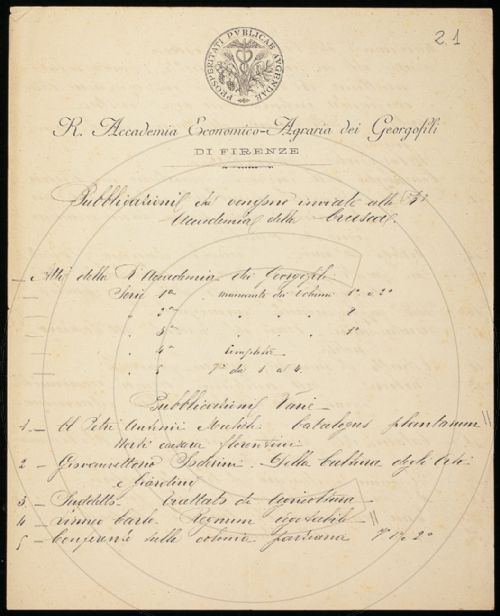 21
PROSPERITATI PVBLICAE AVGENDAE
R. Accademia Economico-Agraria dei Georgofili
DI FIRENZE
Pubblicazioni che vengono inviate alla R.
Accademia della Crusca.
Atti della R. Accademia dei Georgofili
Serie 1a mancante dei volumi 1o e 2o
" 2a " " "
" 3a " " " 1o
" 4a Completa
" 5 da 1 a 4.
Pubblicazioni Varie
1 - Petri Antonii Micheli Catalogus plantarum
Horti caesarei florentini
2 - Giovanvettorio Soderini - Della Cultura degli Orti
e Giardini
3 - Suddetto - Trattato di Agricoltura
4 - Linneo Carlo - Regnum vegetabile
5 - Conferenze sulla colonia parziaria 1o e 2o